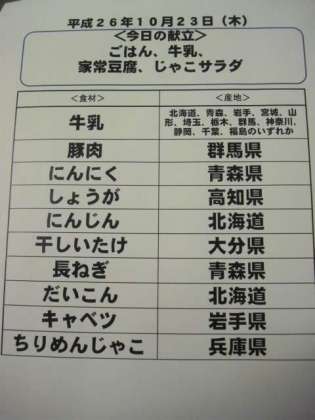 平成26年10月23日（木）
＜今日の献立＞
ごはん、牛乳、
家常豆腐、じゃこサラダ
＜食材＞ ＜産地＞
牛乳 北海道、青森、岩手、宮城、山
形、埼玉、栃木、群馬、神奈川、
静岡、千葉、福島のいずれか
豚肉 群馬県
にんにく 青森県
しょうが 高知県
にんじん 北海道
干しいたけ 大分県
長ねぎ 青森県
だいこん 北海道
キャベツ 岩手県
ちりめんじゃこ 兵庫県